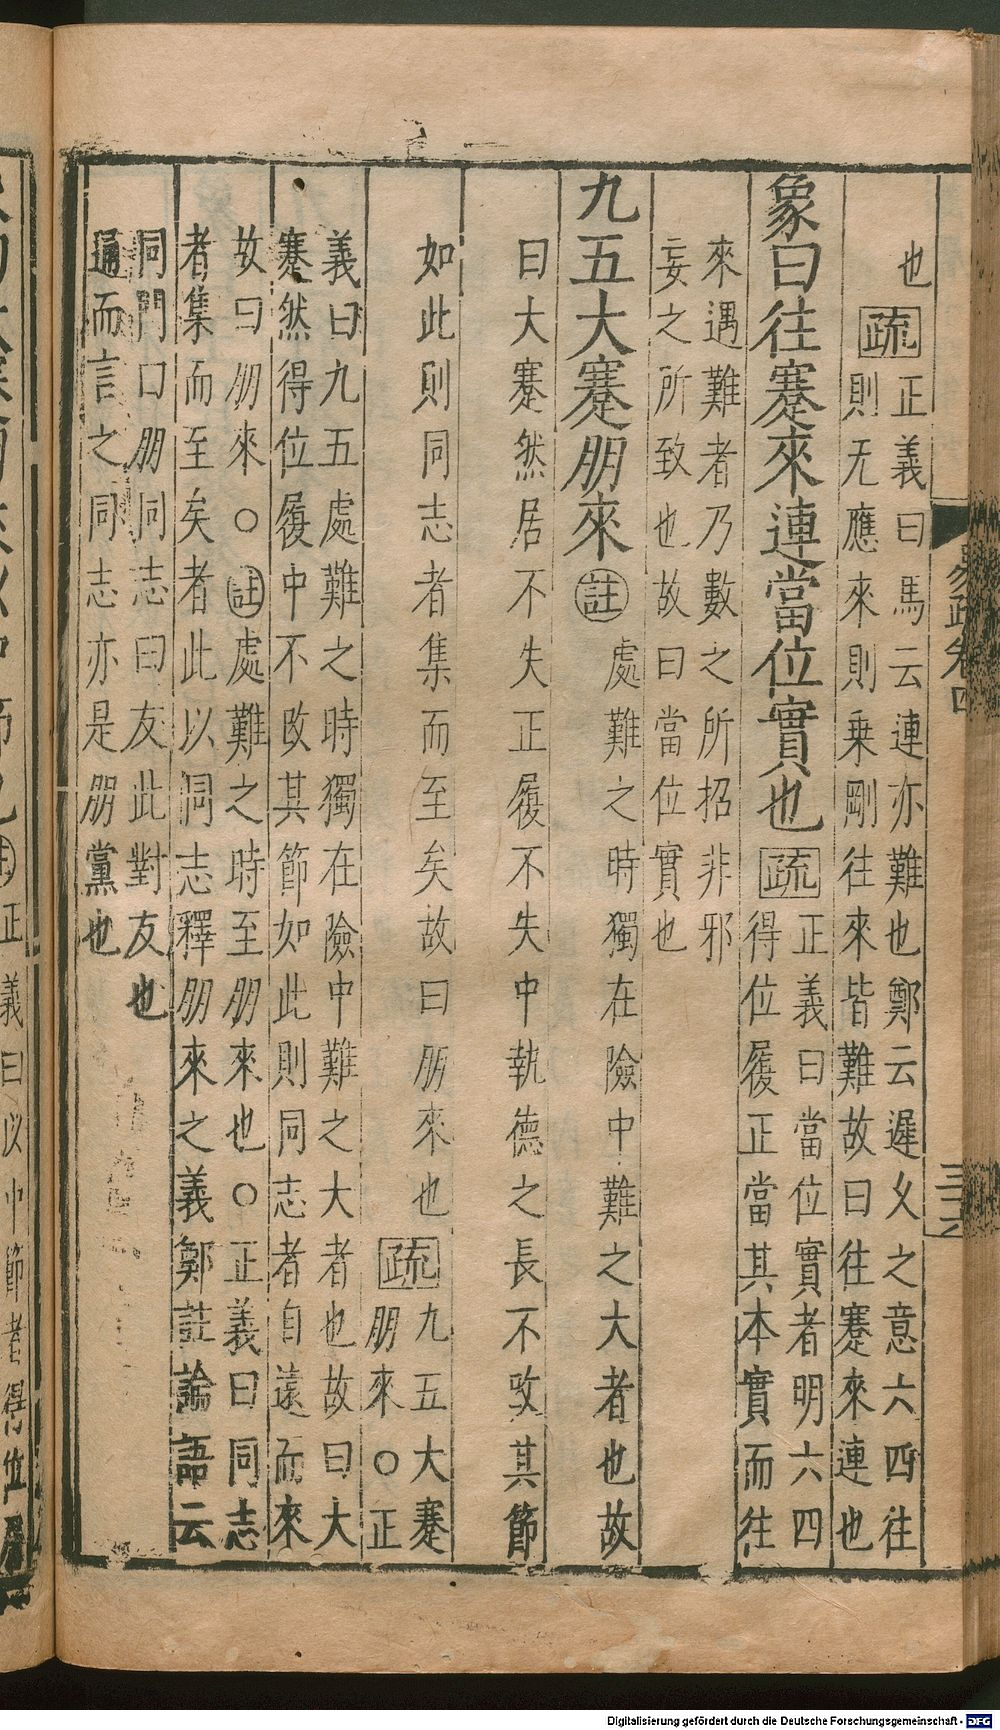 易疏卷四
三十六
也疏正義曰馬云連亦難也鄭云遲久之意六四往
則无應來則乗剛往來皆難故曰往蹇來連也
象曰往蹇來連當位實也疏正義曰當位實者明六四
得位履正當其本實而往
來遇難者乃數之所招非邪
妄之所致也故曰當位實也
九五大蹇朋來註處難之時獨在險中難之大者也故
曰大蹇然居不失正履不失中執德之長不攺其節
如此則同志者集而至矣故曰朋來也疏九五大蹇
朋來○正
義曰九五處難之時獨在險中難之大者也故曰大
蹇然得位履中不攺其節如此則同志者自遠而來
故曰朋來○註處難之時至朋來也○正義曰同志
者集而至矣者此以同志釋朋來之義鄭註論語云
同門曰朋同志曰友此對友也
通而言之同志亦是朋黨也
正義曰以中節者得位履
Digitalisierung gefördert durch die Deutsche Forschungsgemeinschaft - DFG